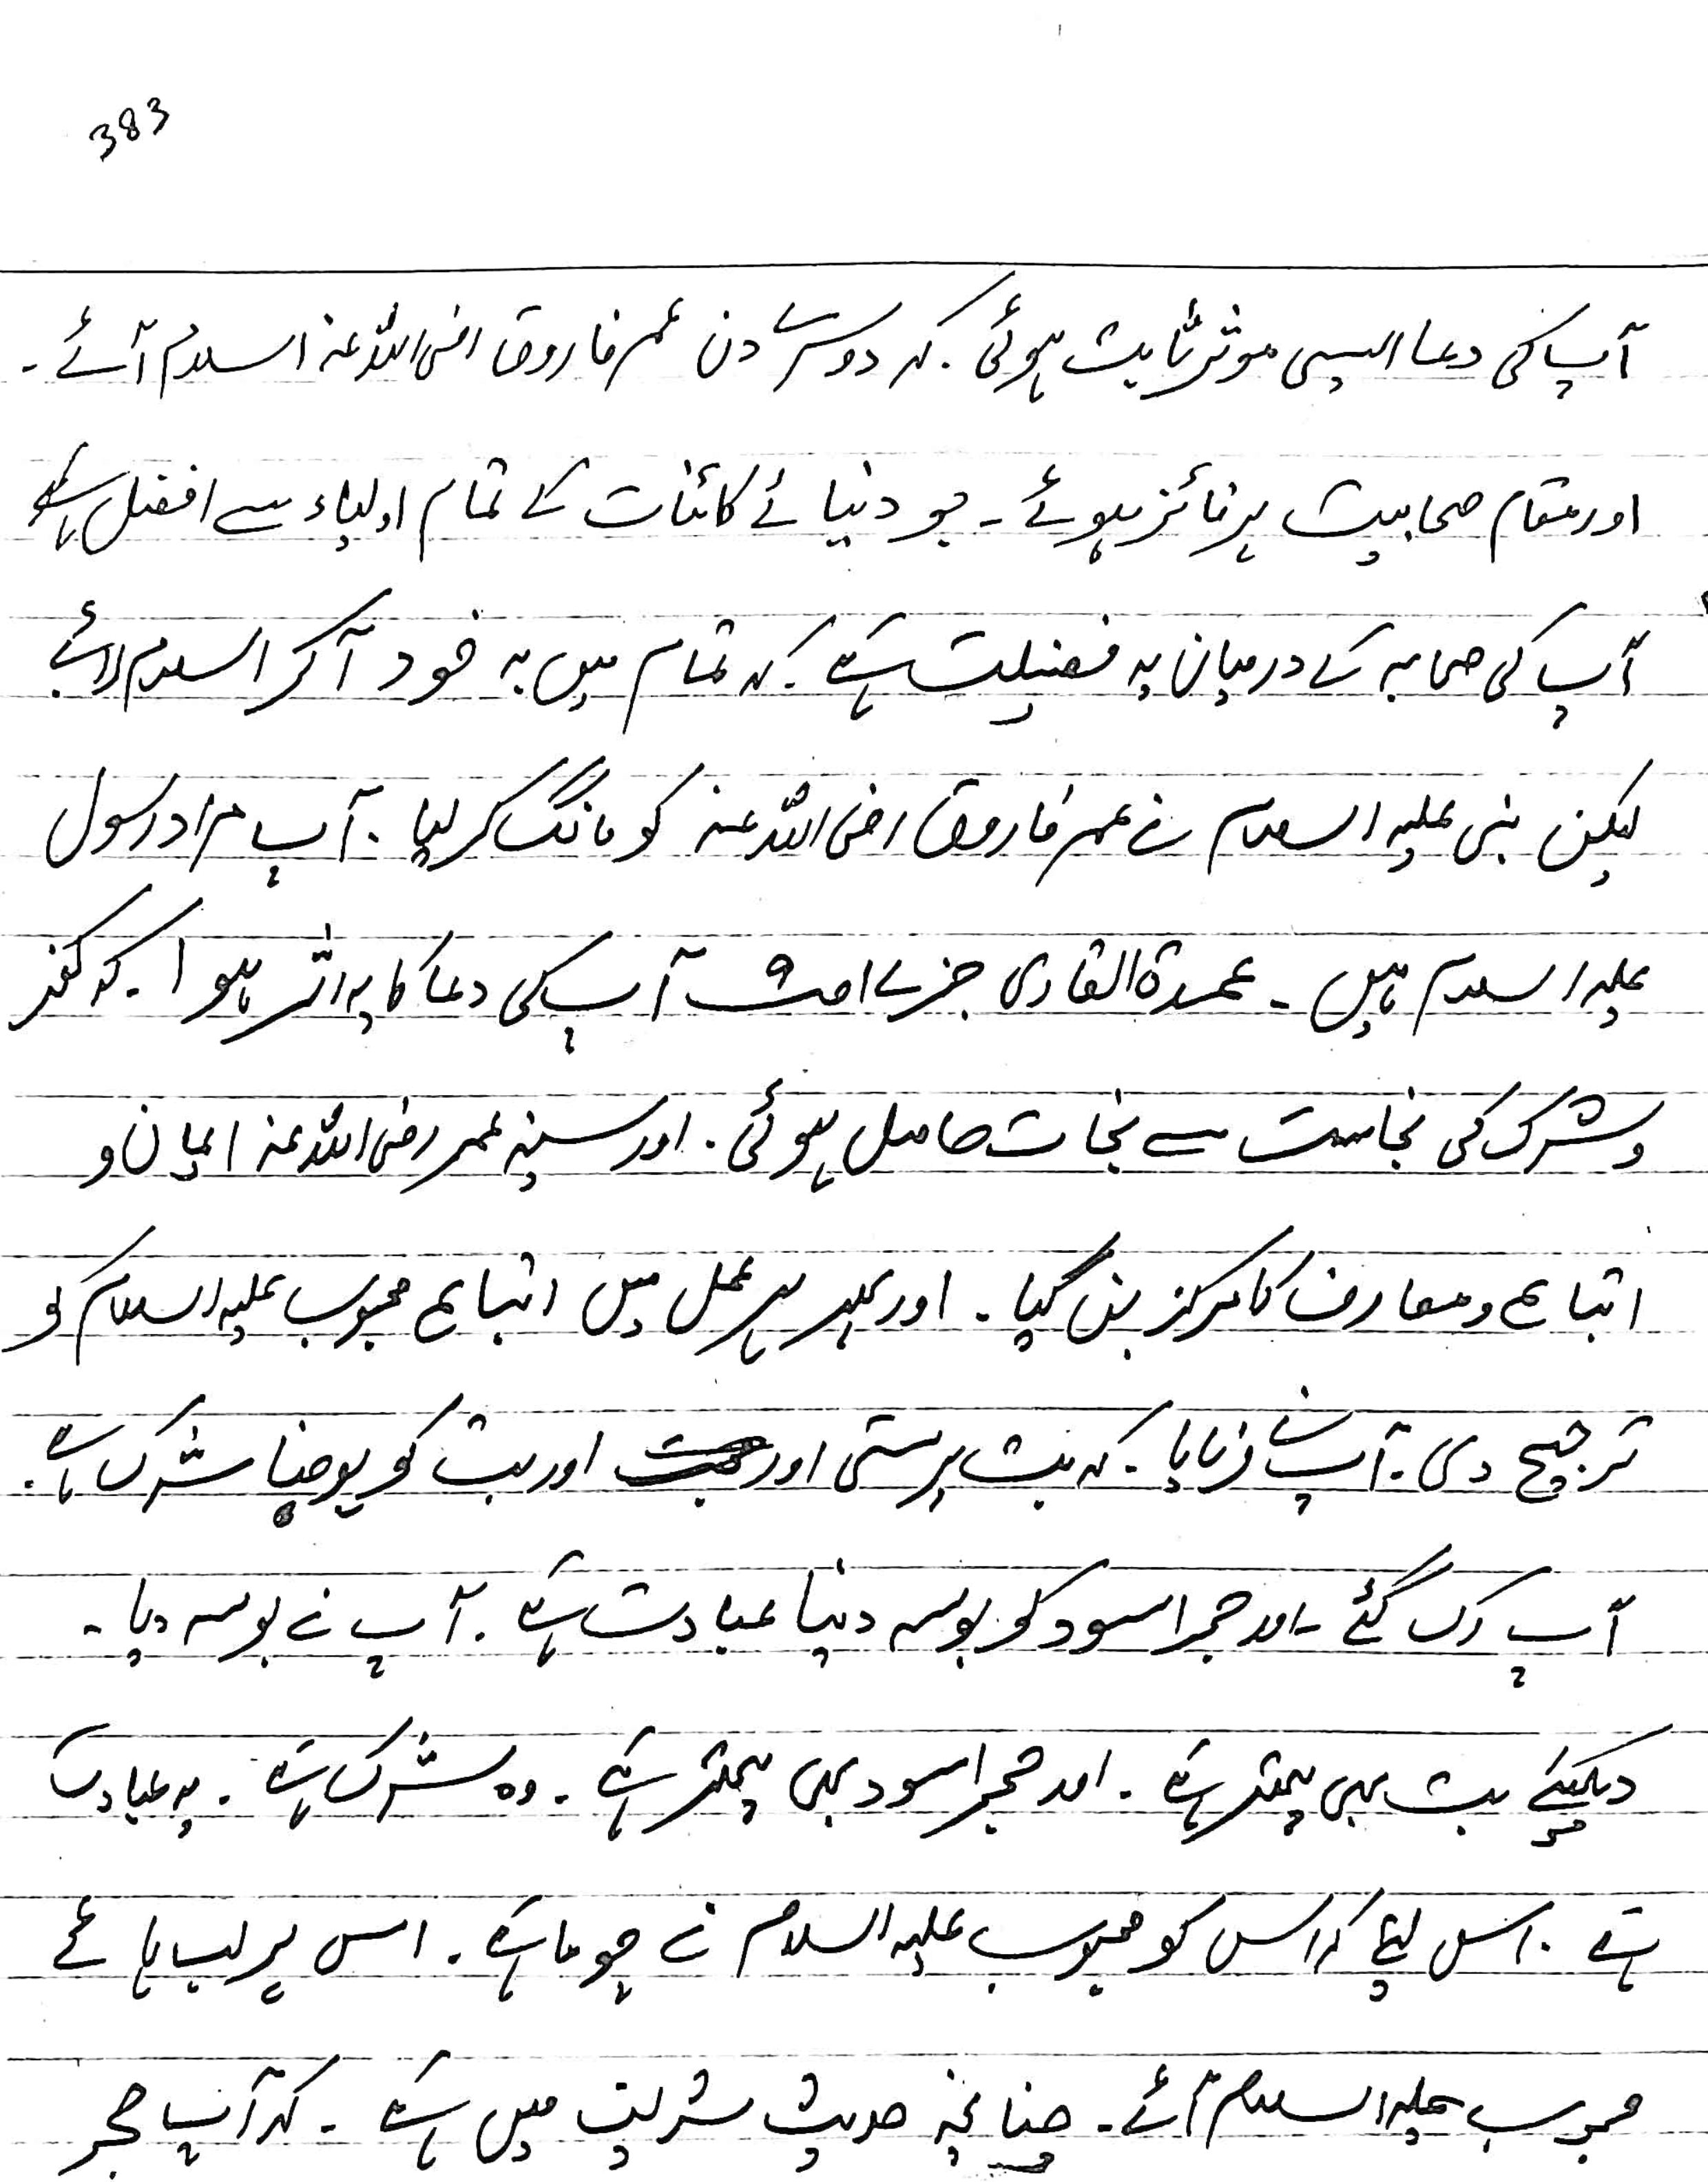 383
آپ کی دعا ایسی موثر ثابت ہوئی ۔ کہ دوسرے دن عمر فاروق رضی اللہ عنہ اسلام آئے ۔
اور مقام صحابیت پر فائز ہوئے ۔ جو دنیائے کائنات کے تمام اولیاء سے افضل ہے
آپ کی صحابہ کے درمیان یہ فضیلت ہے ۔ کہ تمام میں یہ خود آکر السلام لائے
لیکن نبی علیہ السلام نے عمر فاروق رضی اللہ عنہ کو مانگ کر لیا ۔ آپ مراد رسول
علیہ السلام ہیں ۔ عمدۃ القاری آپ کی دعا کا یہ اثر ہوا ۔ کہ کفر
و شرک کی نجاست سے نجات حاصل ہوئی ۔ اور سینہ عمر رضی اللہ عنہ ایمان و
اتباع و معارف کا مرکز بن گیا ۔ اور ہر ہر عمل میں اتباع محبوب علیہ السلام کو
ترجیح دی ۔ آپ نے فرمایا ۔ کہ بت پرستی اور اور بت کو پوجنا شرک ہے ۔
آپ رک گئے ۔ اور حجر اسود کو بوسہ دینا عبادت ہے ۔ آپ نے بوسہ دیا ۔
دیکھئے بت بھی پتھر ہے ۔ اور حجر اسود بھی پتھر ہے ۔ وہ شرک ہے ۔ یہ عبادت
ہے ۔ اس لئے کہ اس کو محبوب علیہ السلام نے چوما ہے ۔ اس پر لب ہائے
محبوب علیہ السلام آئے ۔ چنانچہ حدیث شریف میں ہے ۔ کہ آپ حجر